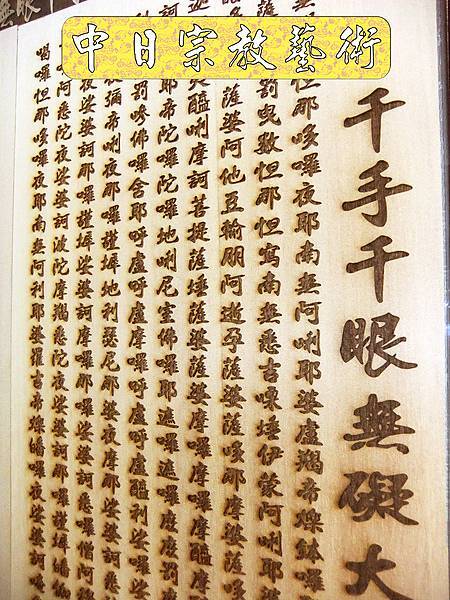 中日宗教藝術
千手千眼無礙大
怛那哆囉夜耶南無阿唎耶婆盧羯帝爍鉢囉
罰曳數怛那怛寫南無悉吉嘌埵伊蒙阿唎耶
薩婆阿他豆輸朋阿逝孕薩婆薩哆那摩婆薩
醯唎摩訶菩提薩埵薩婆薩婆摩囉摩囉摩醯摩
耶帝陀囉陀囉地唎尼室佛囉耶遮囉遮囉麼麼罰
罰嘇佛囉舍耶呼盧呼盧摩囉呼盧呼盧醯利娑囉
彌帝唎夜那囉謹墀地利瑟尼那婆夜摩那娑婆訶悉
夜娑婆訶那囉謹墀娑婆訶摩囉那囉娑婆訶悉囉僧阿
阿悉陀夜娑婆訶波陀摩羯悉陀夜娑婆訶那囉謹墀皤伽
喝囉怛那哆囉夜耶南無阿利耶婆羅吉帝爍皤囉夜娑婆訶